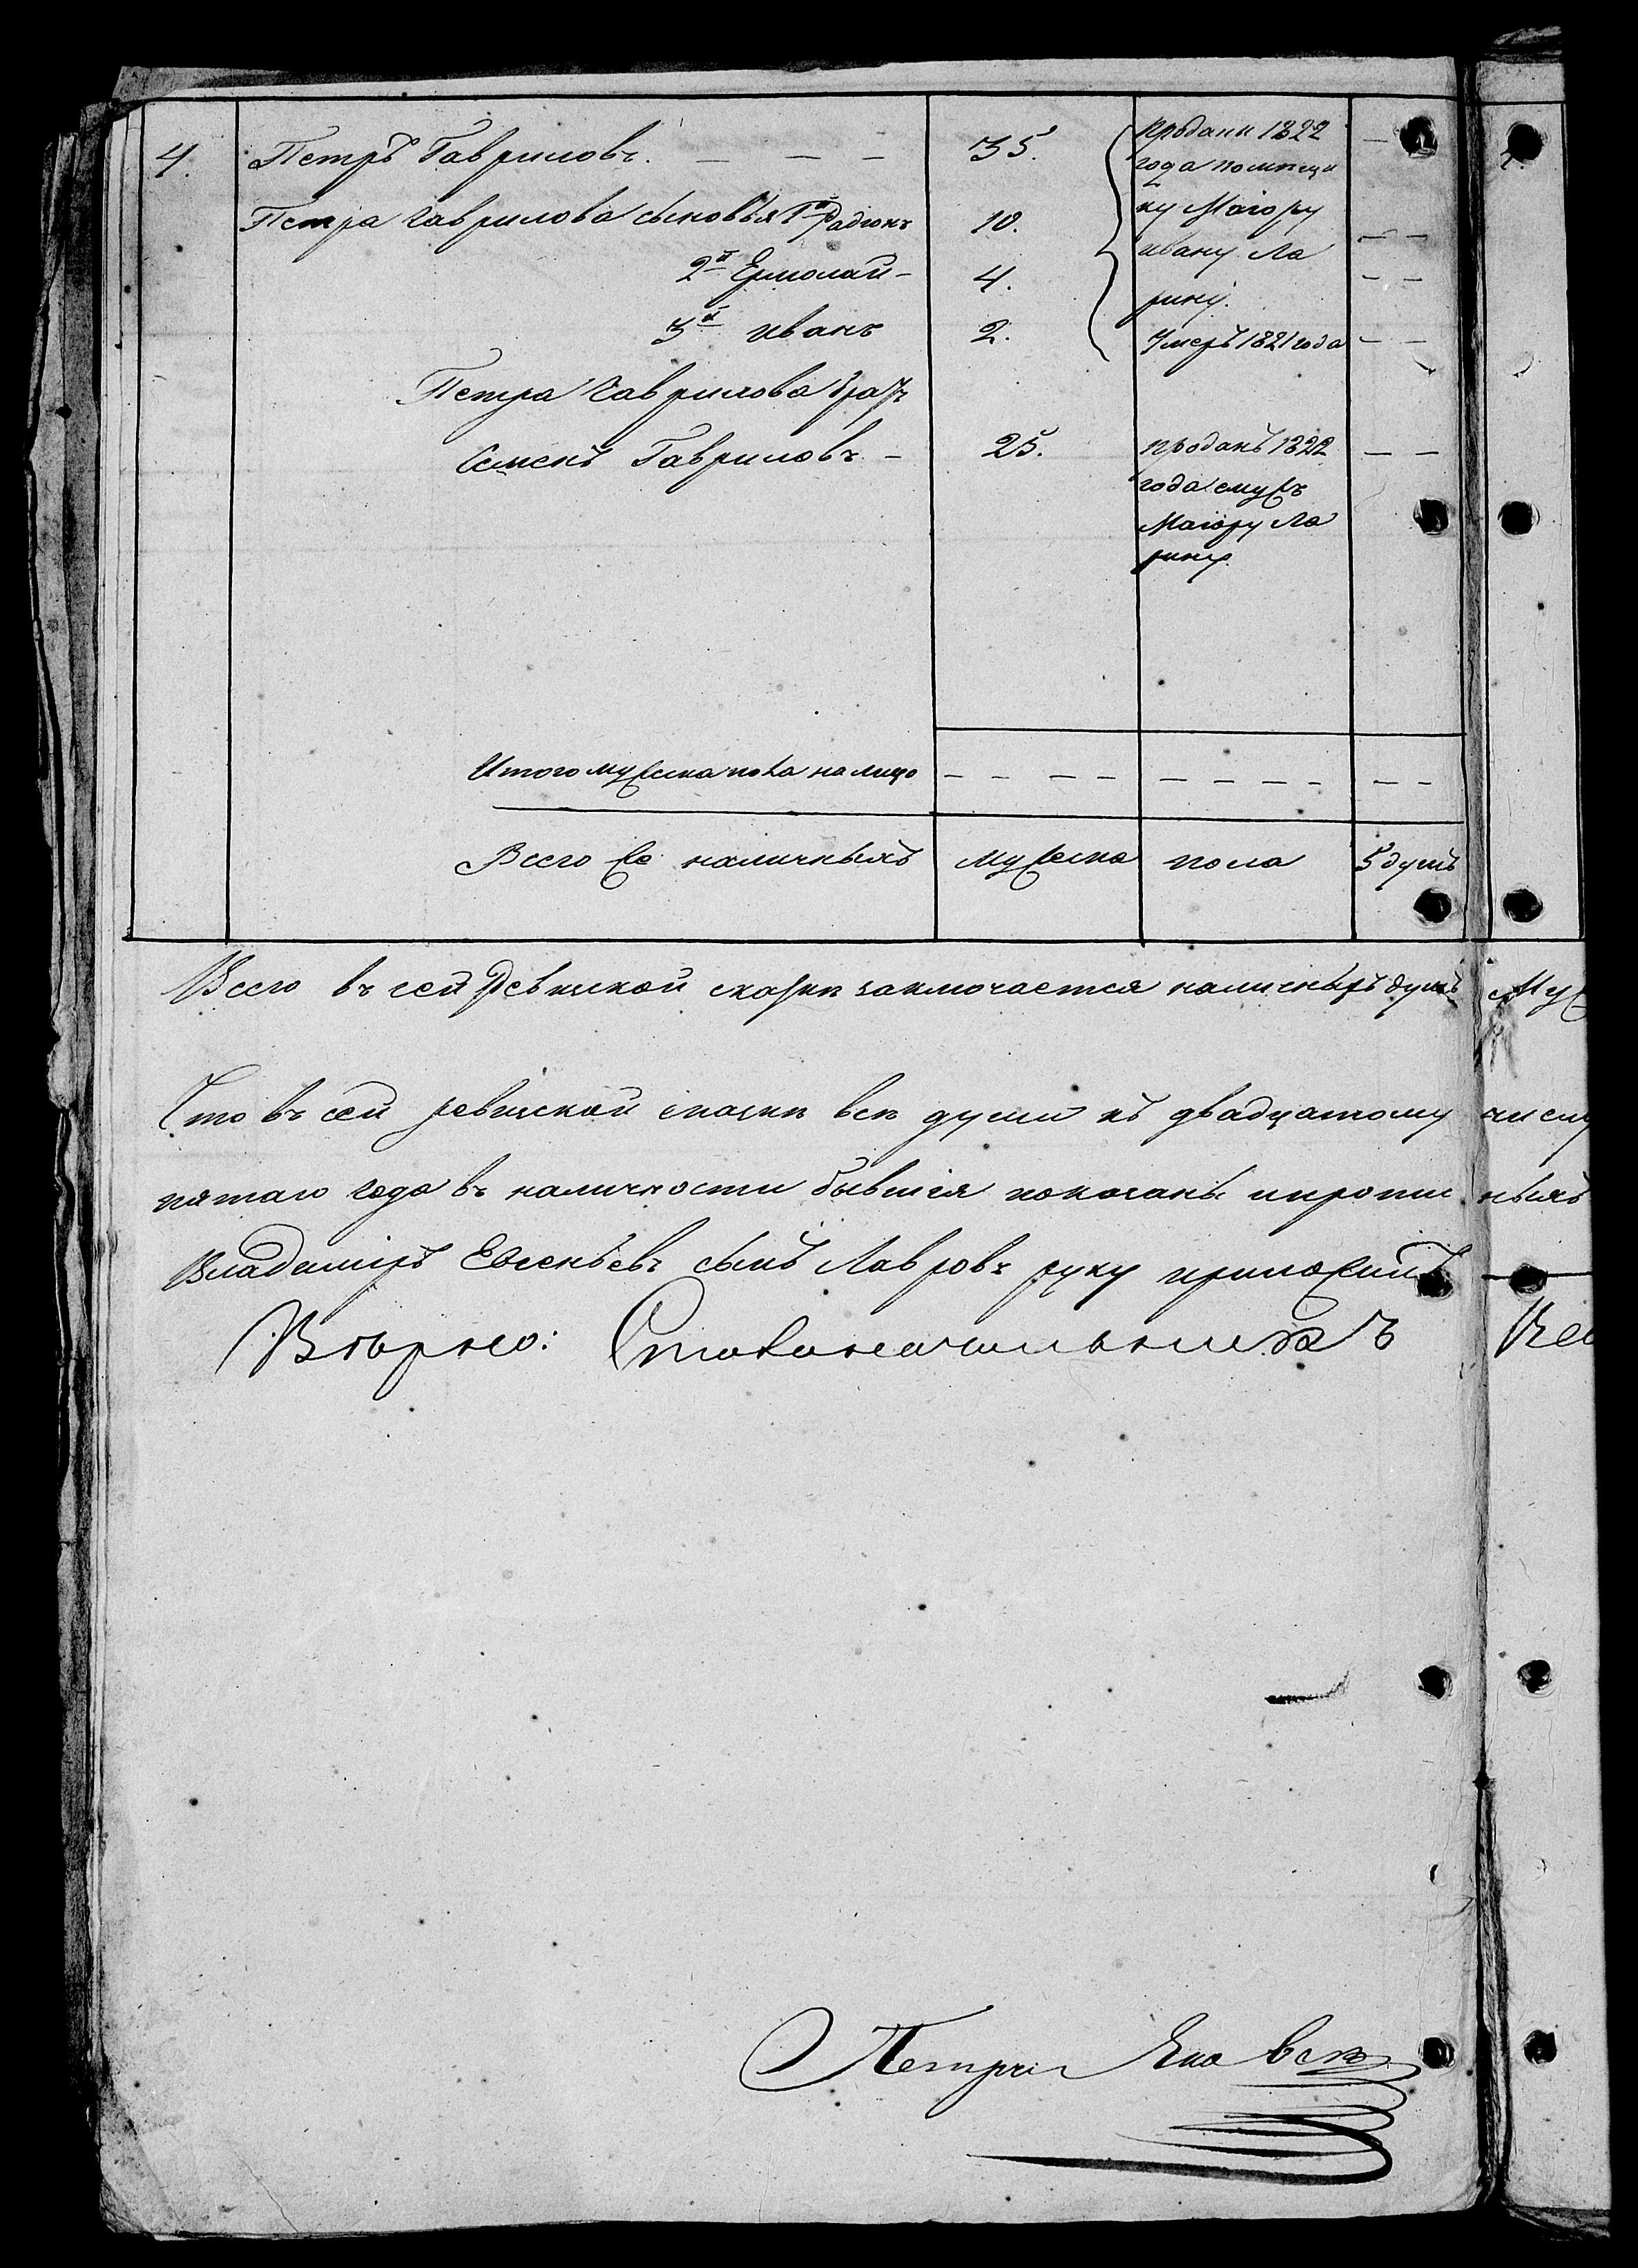 4. Петръ Гавриловъ. — — — 35. проданы 1822 —
года помѣщи
Петра Гаврилова сыновья 1й Радіонъ 10. ку Маіору — —
Ивану Ла
2й Ермолай — 4. рину. — —
3й Иванъ 2. Умеръ 1821 года — —
Петра Гаврилова братъ
Семенъ Гавриловъ — 25. проданъ 1822 — —
года емужъ
Маіору Ла
рину.
Итого мужеска пола на лицо — — — — — — — — — — —
Всего же наличныхъ мужеска пола 5 душъ
Всего въ сей Ревизской сказкѣ заключается наличныхъ душъ Муж
Что въ сей ревизской сказкѣ всѣ души къ двадцатому числу
пятаго года въ наличности бывшія показаны и пропис ныхъ
Владимиръ сынъ Лавровъ руку приложилъ
Вѣрно: Столоначальникъ